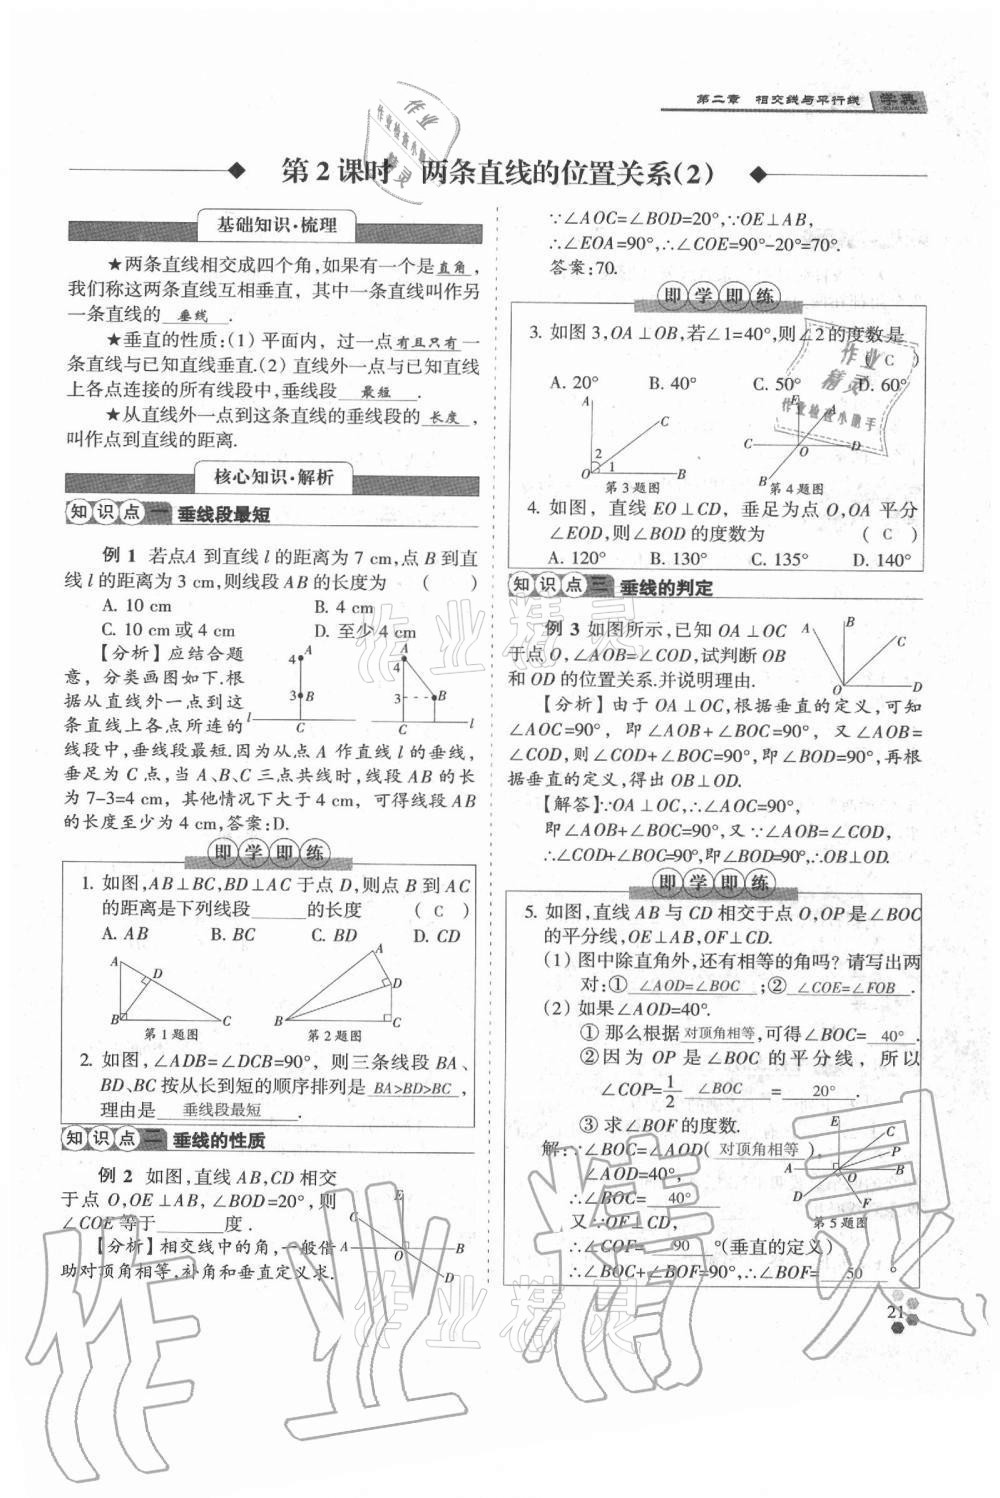 第二章 相交线与平行线 学典
XUEDIAN
第2课时 两条直线的位置关系(2)
基础知识·梳理
★两条直线相交成四个角,如果有一个是 直角 ,
我们称这两条直线互相垂直, 其中一条直线叫作另
一条直线的 垂线 .
★垂直的性质:(1) 平面内, 过一点 有且只有 一
条直线与已知直线垂直.(2) 直线外一点与已知直线
上各点连接的所有线段中,垂线段 最短 .
★从直线外一点到这条直线的垂线段的 长度 ,
叫作点到直线的距离.
核心知识·解析
知识点一 垂线段最短
例 1 若点A 到直线 l 的距离为 7 cm,点 B 到直
线 l 的距离为 3 cm,则线段 AB 的长度为 ( )
A. 10 cm B. 4 cm
C. 10 cm 或 4 cm D. 至少 4 cm
【分析】应结合题
意, 分类画图如下.根
据从直线外一点到这
条直线上各点所连的
线段中,垂线段最短.因为从点 A 作直线 l 的垂线,
垂足为 C 点,当 A、B、C 三点共线时,线段 AB 的长
为 7-3=4 cm, 其他情况下大于 4 cm, 可得线段 AB
的长度至少为 4 cm,答案:D.
A
4
3 B
l
C
A
4
3
B
C l
即学即练
1. 如图,AB⊥BC,BD⊥AC 于点 D,则点 B 到 AC
的距离是下列线段 的长度 ( C )
A. AB B. BC C. BD D. CD
A
D
B C
第 1 题图
A
D
B C
第 2 题图
2. 如图, ∠ADB=∠DCB=90°, 则三条线段 BA、
BD、BC 按从长到短的顺序排列是 BA>BD>BC ,
理由是 垂线段最短 .
知识点二 垂线的性质
例 2 如图,直线 AB,CD 相交
于点 O,OE⊥AB, ∠BOD=20°, 则
∠COE 等于 度.
【分析】相交线中的角,一般借
助对顶角相等, 补角和垂直定义求.
E
C
A O B
D
∵∠AOC=∠BOD=20°,∵OE⊥AB,
∴∠EOA=90°,∴∠COE=90°-20°=70°.
答案:70.
即学即练
3. 如图 3,OA⊥OB,若∠1=40°,则∠2 的度数是
( C )
A. 20° B. 40° C. 50° D. 60°
A
C
2
1
O B
第 3 题图
E A
C O D
B
第 4 题图
4. 如图, 直线 EO⊥CD, 垂足为点 O,OA 平分
∠EOD,则∠BOD 的度数为 ( C )
A. 120° B. 130° C. 135° D. 140°
知识点三 垂线的判定
例 3 如图所示,已知 OA⊥OC
于点 O,∠AOB=∠COD,试判断 OB
和 OD 的位置关系.并说明理由.
A B
C
O D
【分析】由于 OA⊥OC,根据垂直的定义,可知
∠AOC=90°, 即∠AOB+∠BOC=90°, 又∠AOB=
∠COD,则∠COD+∠BOC=90°,即∠BOD=90°,再根
据垂直的定义,得出 OB⊥OD.
【解答】∵OA⊥OC,∴∠AOC=90°,
即∠AOB+∠BOC=90°,又∵∠AOB=∠COD,
∴∠COD+∠BOC=90°,即∠BOD=90°,∴OB⊥OD.
即学即练
5. 如图,直线 AB 与 CD 相交于点 O,OP 是∠BOC
的平分线,OE⊥AB,OF⊥CD.
(1) 图中除直角外,还有相等的角吗? 请写出两
对:① ∠AOD=∠BOC ;② ∠COE=∠FOB .
(2) 如果∠AOD=40°.
① 那么根据 对顶角相等 ,可得∠BOC= 40° .
②因为 OP 是∠BOC 的平分线, 所以
∠COP=1/2 ∠BOC = 20° .
③ 求∠BOF 的度数.
解:∵∠BOC=∠AOD( 对顶角相等 ),
∠AOD=40°,
∴∠BOC= 40°
又∵OF⊥CD,
∴∠COF= 90 °(垂直的定义)
∴∠BOC+∠BOF=90°,∴∠BOF= 50 °
E C
P
A O B
D
F
第 5 题图
21
作业精灵
作业检查小助手
作业
精灵
作业检查小助手
作业精灵
作业精灵
作业精灵